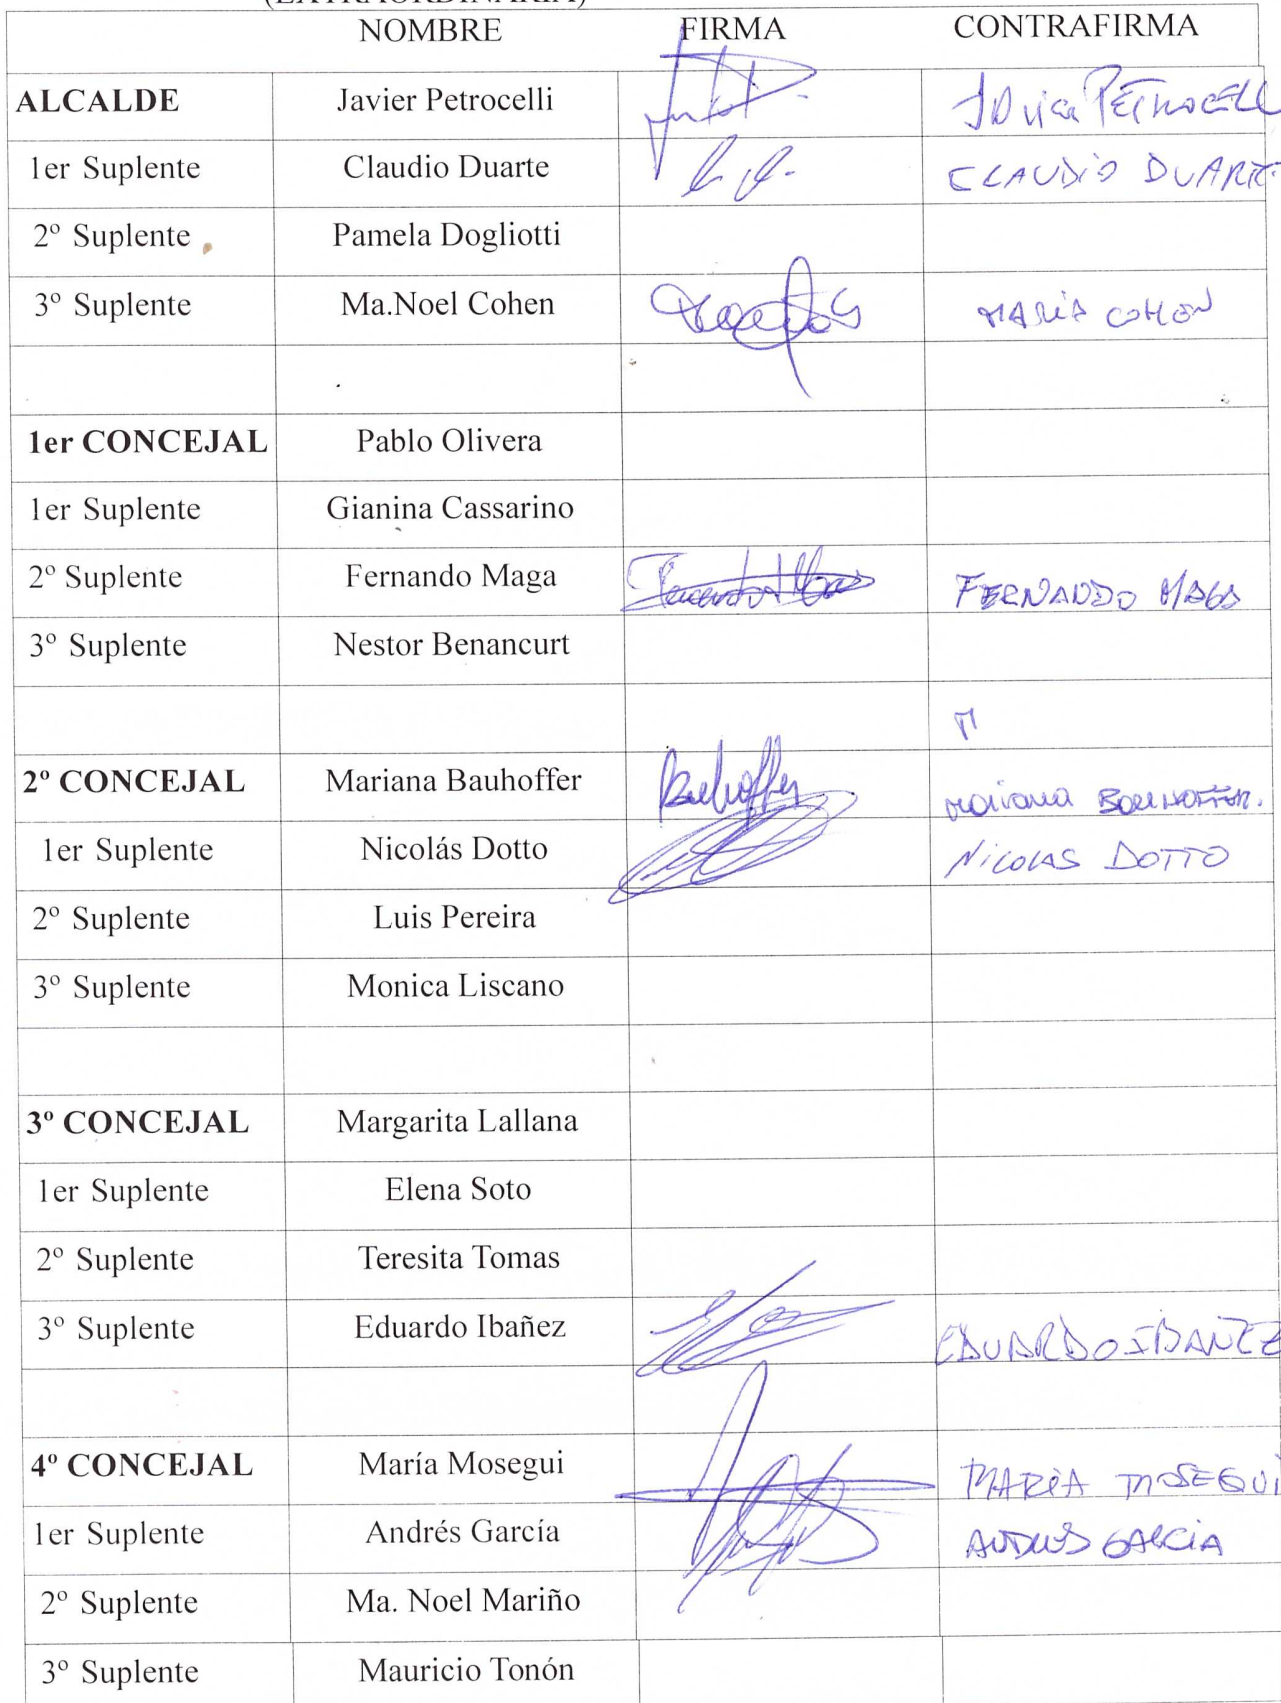 (EXTRAORDINARIA)
NOMBRE FIRMA CONTRAFIRMA
ALCALDE Javier Petrocelli Javier PETROCELLI
1er Suplente Claudio Duarte CLAUDIO DUARTE
2º Suplente Pamela Dogliotti
3º Suplente Ma.Noel Cohen MARIA COHEN
1er CONCEJAL Pablo Olivera
1er Suplente Gianina Cassarino
2º Suplente Fernando Maga FERNANDO MAGA
3º Suplente Nestor Benancurt
2º CONCEJAL Mariana Bauhoffer Bauhoffer Mariana BAUHOFFER.
1er Suplente Nicolás Dotto NicoLAS DOTTO
2º Suplente Luis Pereira
3º Suplente Monica Liscano
3º CONCEJAL Margarita Lallana
1er Suplente Elena Soto
2º Suplente Teresita Tomas
3º Suplente Eduardo Ibañez EDUARDO IBAÑEZ
4º CONCEJAL María Mosegui MARIA MOSEGUI
1er Suplente Andrés García ANDRES GARCIA
2º Suplente Ma. Noel Mariño
3º Suplente Mauricio Tonón